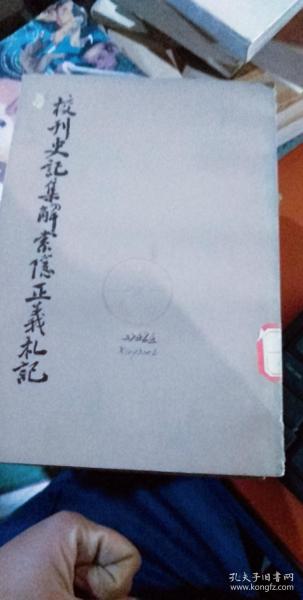 校刊史記集解索隱正義札記
孔夫子旧书网
www.kongfz.com